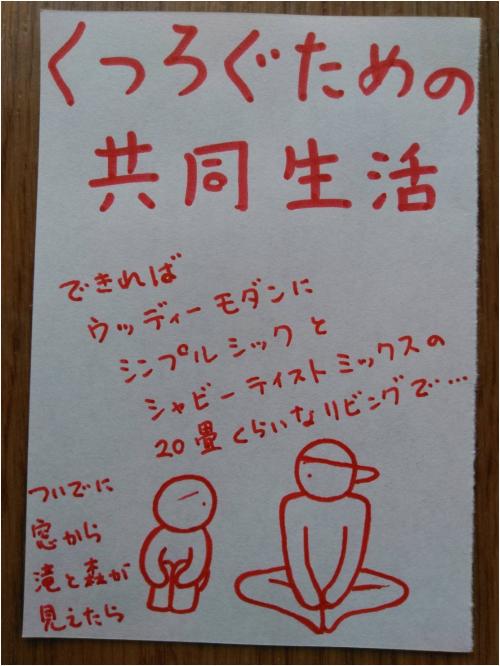 くつろぐための
共同生活
できれば
ウッディーモダンに
シンプルシックと
シャビーテイストミックスの
20畳くらいなリビングで…
ついでに
窓から
滝と森が
見えたら